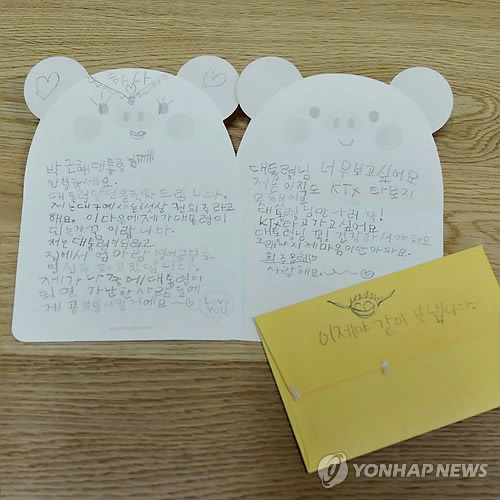 하나
박근혜 대통령님!!!!
안녕하세요.
대통령 당선을 축하드립니다.
저는 대구에서 는 최라고
해요. 이 다음에 제가 대통령이
되는게 꿈 이랍니다.
저는 대통령 되려고
집에서 엄마랑 영어공부도
열심히 하고 있답니다.
제가 나중에 대통령이
되면 가난한 사람들에
게 거에요~♡
LOVE YOU
대통령님 너무 보고싶어요
저는 아직도 KTX 타보지
못했어요
대통령님 만나러 꼭!
KTX 타고 가고 싶어요
대통령님 꼭! 건강하셔야 해요
그래야 제 마음이 안 아파요.
최
사랑해요.~~♡
이제야 같이 보냅니다.
YONHAP NEWS